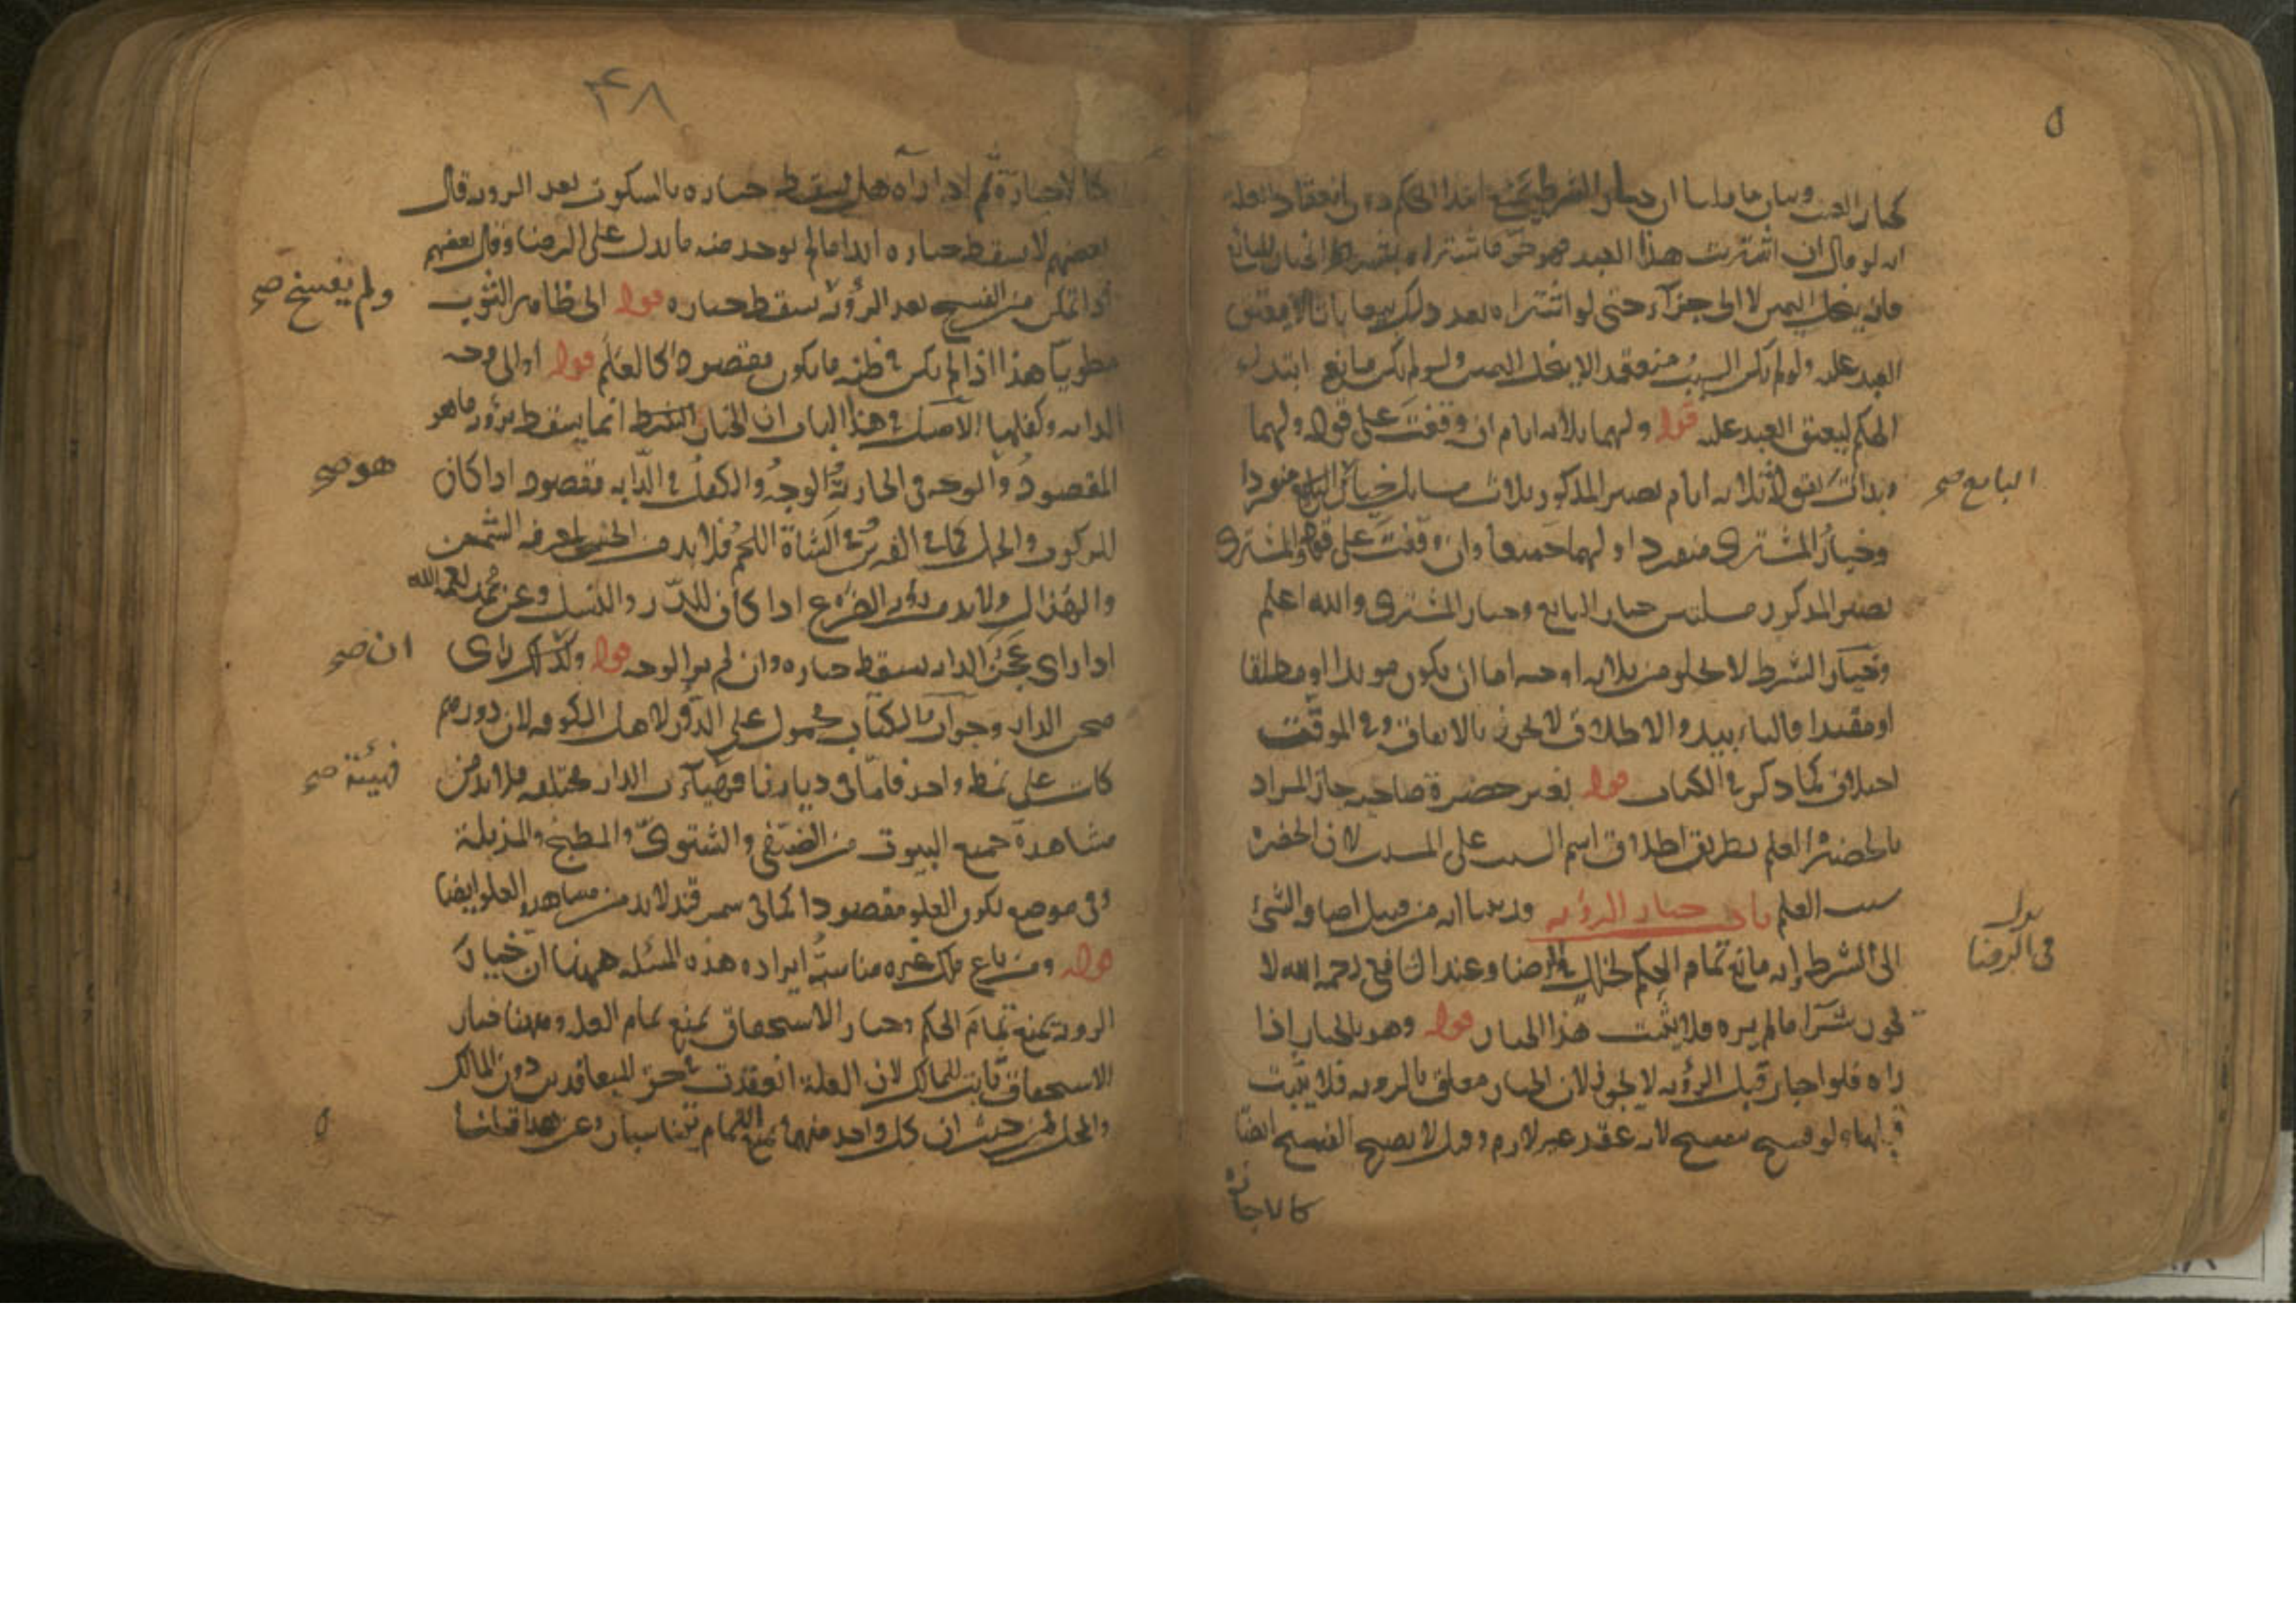 كخيار العيب وبيان ما قلنا ان خيار الشرط يمنع ابتداء الحكم دون انعقاد العلة
انه لو قال ان اشتريت هذا العبد فهو حر فاشتراه بشرط الخيار للبائع
فانه ينحل اليمين لا الى جزاء حتى لو اشتراه بعد ذلك بيعا باتا لا يعتق
العبد عليه ولو لم يكن السبب منعقدا لا ينحل اليمين ولو لم يكن مانع ابتداء
الحكم ليعتق العبد عليه قوله ولهما ثلاثة ايام ان وقفت على قوله ولهما
وبدأت بقوله ثلاثة ايام يصير المذكور ثلاث مسايل خيار البايع منفردا
وخيار المشترى منفردا ولهما جميعا وان وقفت على قوله والمشترى
يصير المذكور مسلتين خيار البايع وخيار المشترى والله اعلم
وخيار الشرط لا يخلو من ثلاثة اوجه اما ان يكون موبدا او مطلقا
او مقيدا فالتابيد والاطلاق لا يجوز بالاتفاق وفى الموقت
اختلاف كما ذكر فى الكتاب قوله بغير حضرة صاحبه جاز المراد
بالحضرة العلم بطريق اطلاق اسم السبب على المسبب لان الحضرة
سبب العلم باب خيار الرؤية وذ انه من قبيل اضافة الشئ
الى الشرط انه مانع تمام الحكم لخلل فى الرضا وعند الشافعى رحمه الله لا
يجوز شراء ما لم يره فلا يثبت هذا الخيار قوله وهو بالخيار اذا
راه فلو اجاز قبل الرؤية لا يجوز لان الخيار معلق بالروية فلا يثبت
قبلها ولو فسخ ينفسخ لانه عقد غير لازم وقيل لا يصح الفسخ ايضا
كالاجازة
البايع صح
فى الرضا
٤٨
كالاجازة ثم اذا رآه هل يسقط خياره بالسكوت بعد الروية قال
بعضهم لا يسقط خياره ابدا ما لم يوجد منه ما يدل على الرضا وقال بعضهم
اذا تمكن من الفسخ بعد الرؤية يسقط خياره قوله الى ظاهر الثوب
مطويا هذا اذا لم يكن فى ظنه ما يكون مقصودا كالعلم قوله او الى وجه
الدابه وكفلها الاصل فى هذا الباب ان الخيار انما يسقط برؤية ما هو
المقصود والوجه فى الجارية الوجه والكفل فى الدابه مقصود اذا كان
للركوب والحمل كما فى الفرس وفى الشاة اللحم فلا بد من الجس ليعرف السمن
والهزال ولا بد من رؤية الضرع اذا كان للدر والنسل وعن محمد رحمه الله
اذا راى عجز الدابة يسقط خياره وان لم ير الوجه قوله وكذلك راى
صحن الدار وجواب الكتاب محمول على الدور لاهل الكوفه لان دورهم
كانت على نمط واحد فاما فى ديارنا فهيآت الدار مختلفه فلا بد من
مشاهدة جميع البيوت من الصيفى والشتوى والمطبخ والمزبلة
وفى موضع يكون العلو مقصودا كما فى سمرقند لا بد من مشاهدة العلو ايضا
قوله ومن باع ملك غيره مناسبة ايراد هذه المسئله ههنا ان خيار
الروية يمنع تمام الحكم وخيار الاستحقاق يمنع تمام العلة وههنا خيار
الاستحقاق ثابت للمالك لان العلة انعقدت فى حق المتعاقدين دون المالك
والمحل فمن حيث ان كل واحد منهما يمنع التمام يتناسبان وعن هذا قلنا
ولم يفسخ صح
هو صح
ان صح
فهيئة صح